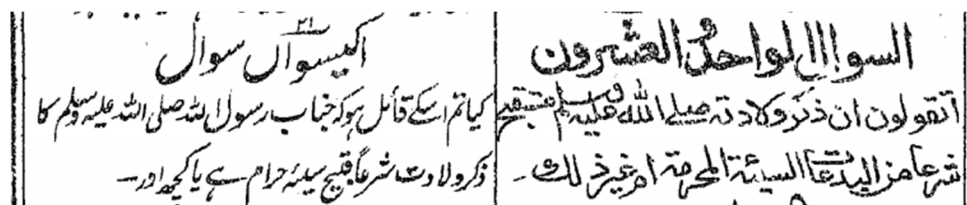 السوال الواحد و العشرون
اتقولون ان ذكر ولادته صلے الله عليه وسلم مستقبح
شرعا من البدعات السيئة المحرمة ام غير ذلك -
اکیسواں سوال ۲۱
کیا تم اسکے قائل ہو کہ جناب رسول اللہ صلی اللہ علیہ وسلم کا
ذکر ولادت شرعاً قبیح سیئہ حرام ہے یا کچھ اور -